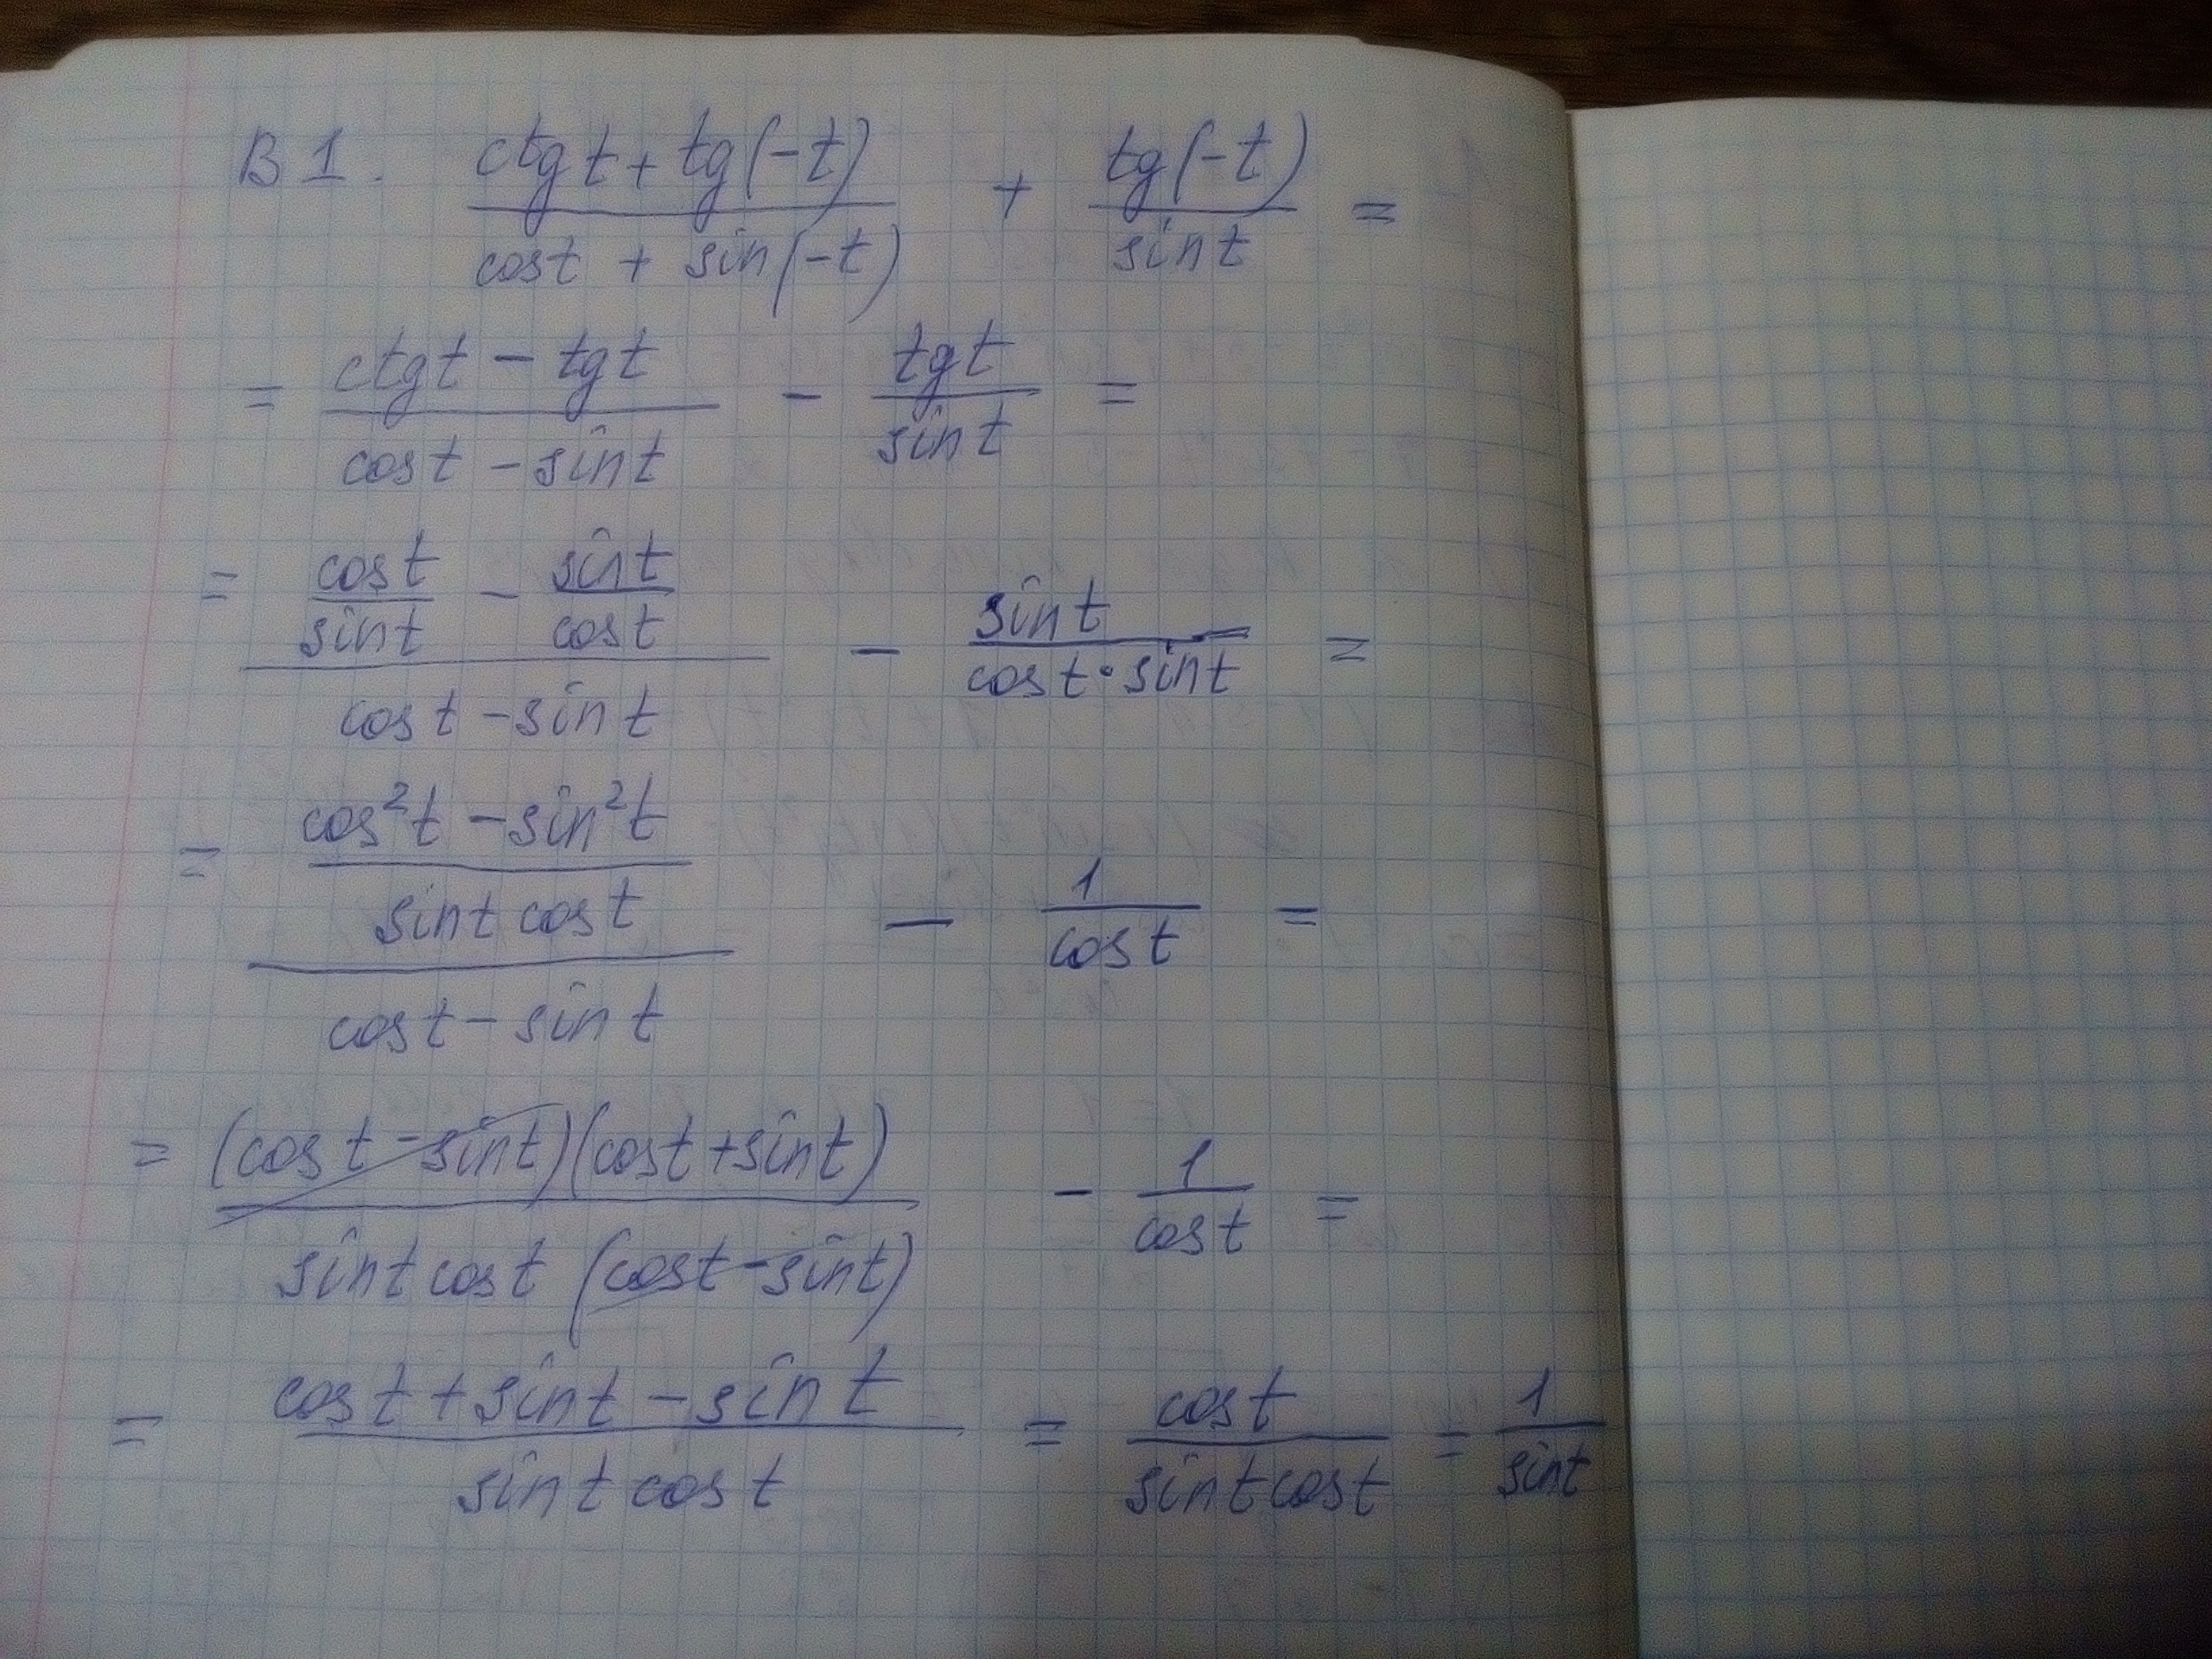 B 1. (ctg t + tg(-t))/(cos t + sin(-t)) + tg(-t)/sin t =
= (ctg t - tg t)/(cos t - sin t) - tg t/sin t =
= (cos t/sin t - sin t/cos t)/(cos t - sin t) - sin t/(cos t · sin t) =
= ((cos²t - sin²t)/(sin t cos t))/(cos t - sin t) - 1/cos t =
= (cos t - sin t)(cos t + sin t)/(sin t cos t (cos t - sin t)) - 1/cos t =
= (cos t + sin t - sin t)/(sin t cos t) = cos t/(sin t cos t) = 1/sin t